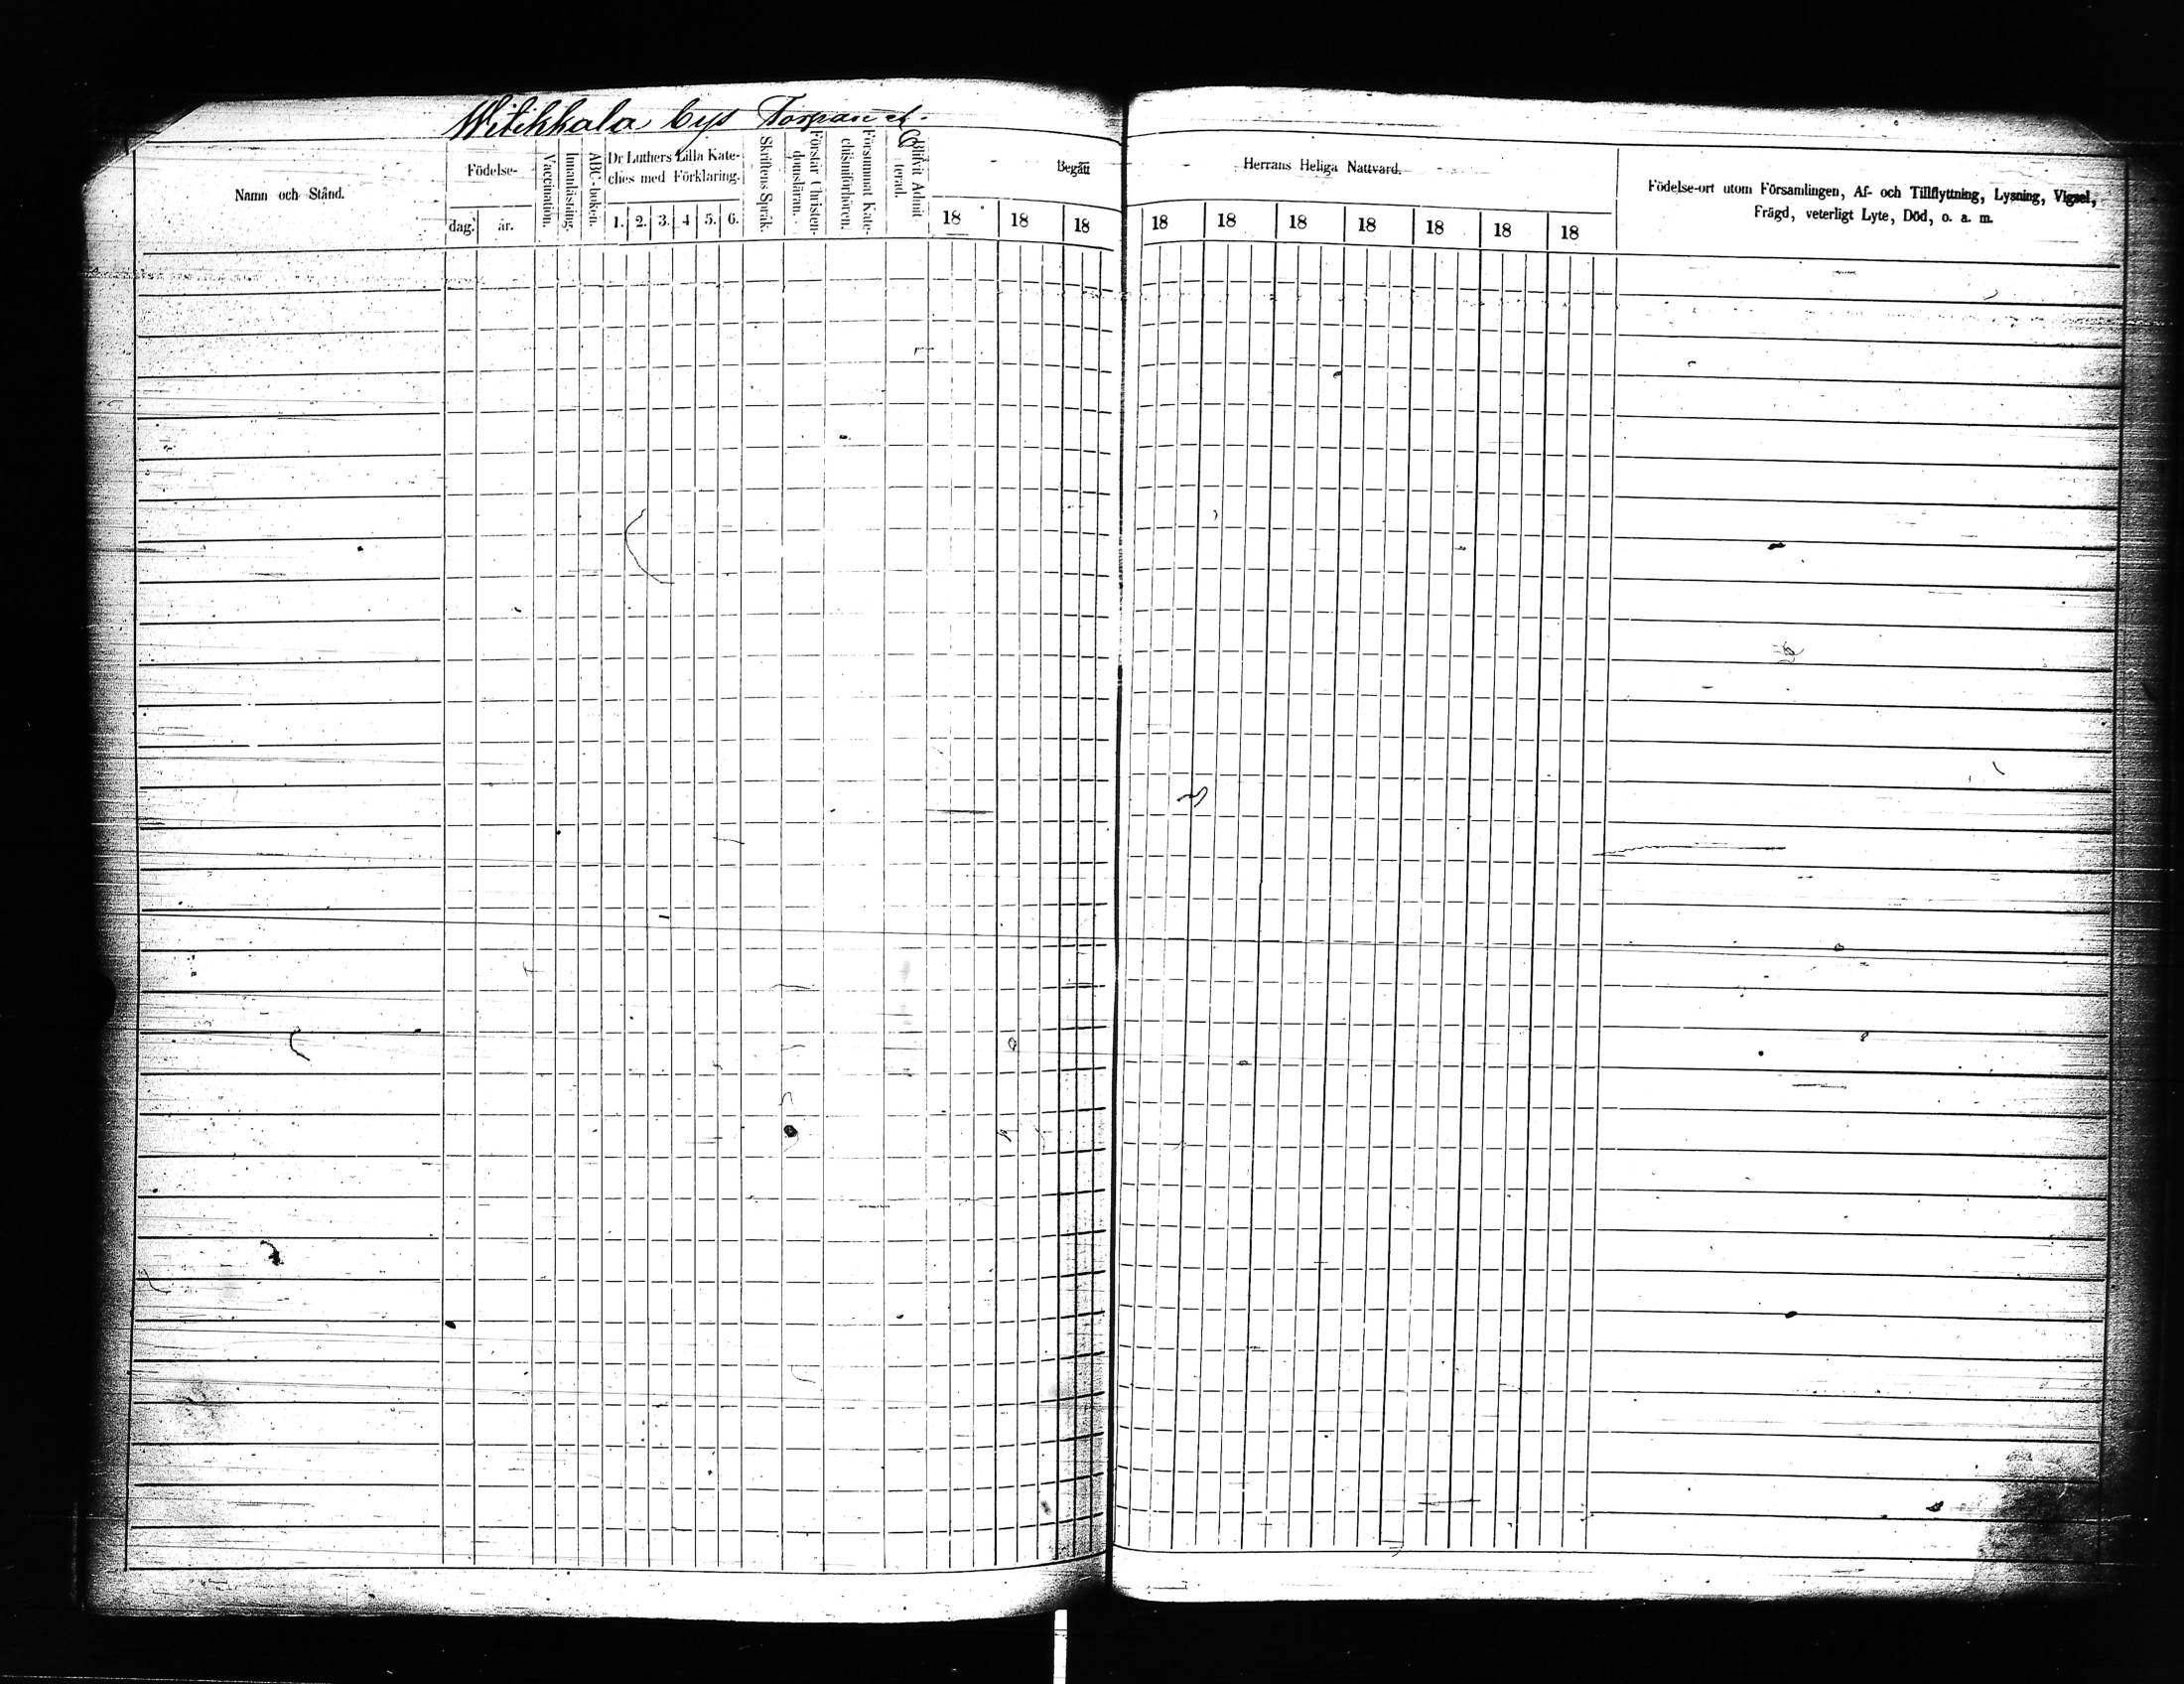 Witikkala bys Torpare et.
Namn och Stånd.
Födelse-
dag.
år.
Vaccination.
Innanläsning.
ABC-boken.
Dr Luthers Lilla Kate-
ches med Förklaring.
1. 2. 3. 4 5. 6.
Skriftens Språk.
Förstår Christen-
domsläran.
Försummat Kate-
chismiförhören.
Blifvit Admit
terad.
Begått
18 18 18
Herrans Heliga Nattvard.
18 18 18 18 18 18 18
Födelse-ort utom Församlingen, Af- och Tillflyttning, Lysning, Vigsel,
Frägd, veterligt Lyte, Död, o. a. m.